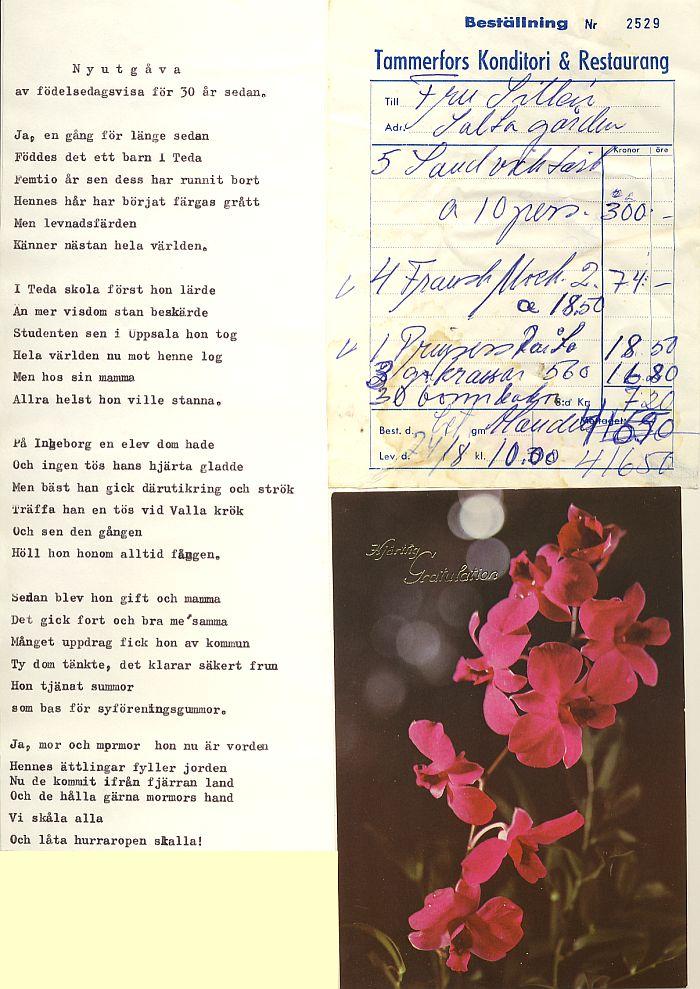 N y u t g å v a
av födelsedagsvisa för 30 år sedan.
Ja, en gång för länge sedan
Föddes det ett barn i Teda
Femtio år sen dess har runnit bort
Hennes hår har börjat färgas grått
Men levnadsfärden
Känner nästan hela världen.
I Teda skola först hon lärde
Än mer visdom stan beskärde
Studenten sen i Uppsala hon tog
Hela världen nu mot henne log
Men hos sin mamma
Allra helst hon ville stanna.
På Ingeborg en elev dom hade
Och ingen tös hans hjärta gladde
Men bäst han gick därutikring och strök
Träffa han en tös vid Valla krök
Och sen den gången
Höll hon honom alltid fången.
Sedan blev hon gift och mamma
Det gick fort och bra me'samma
Månget uppdrag fick hon av kommun
Ty dom tänkte, det klarar säkert frun
Hon tjänat summor
som bas för syföreningsgummor.
Ja, mor och mormor hon nu är vorden
Hennes ättlingar fyller jorden
Nu de kommit ifrån fjärran land
Och de hålla gärna mormors hand
Vi skåla alla
Och låta hurraropen skalla!
Beställning Nr 2529
Tammerfors Konditori & Restaurang
Till Fru
Adr.
Kronor öre
5
a 10 pers. 300:-
4 Fransk Mock. 2. 74:-
a 18.50
1 Prinsess 18.50
560 16.80
30 S:a Kr. 7.20
Mottaget:
Best. d. gm 416.50
Lev. d. 24/8 kl. 10.00 416.50
Hjärtlig
Gratulation